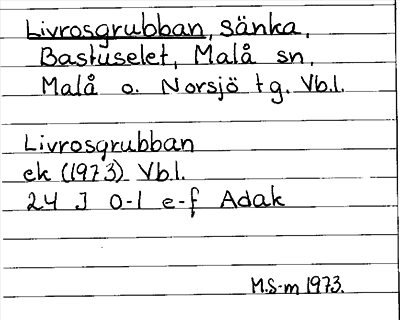 Livrosgrubban, sänka,
Bastuselet, Malå sn,
Malå o. Norsjö tg. Vb.l.
Livrosgrubban
ek (1973) Vb.l.
24 J 0-1 e-f Adak
M.S-m 1973.